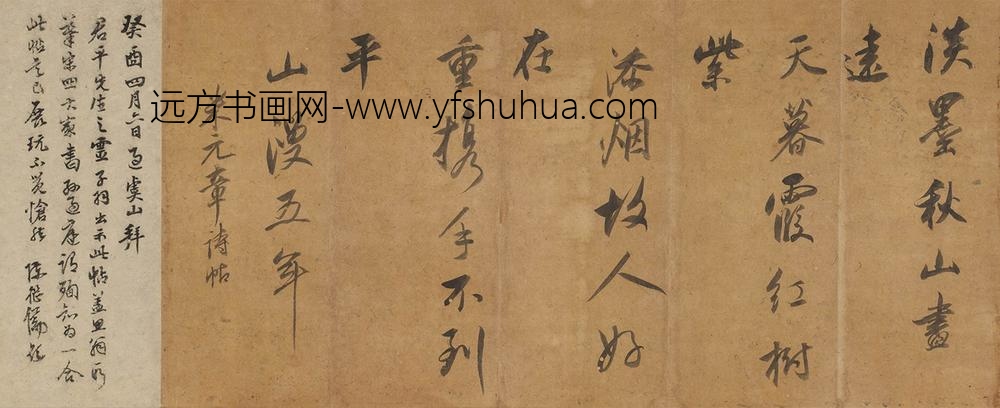 淡墨秋山畫
遠
天暮霞紅樹
紫
添烟故人好
在
重携手不到
平
山謾五年
米元章詩帖
癸酉四月六日過虞山拜
君平先生之靈子羽出示此帖蓋思翁所
宋四大家書孫過庭謂殉知為一合
此帖是已展玩不覺愴然 陳繼儒題
远方书画网-www.yfshuhua.com